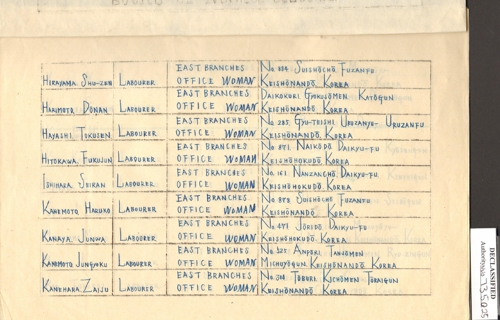 EAST BRANCHES No. 884 SUISHŌCHŌ FUZANFU
HIRAYAMA SHU-ZEN LABOURER OFFICE WOMAN KEISHŌNANDŌ KOREA
EAST BRANCHES DAIKOKURI GYOKUSŌMEN KATŌGUN
HARIMOTO DONAN LABOURER OFFICE WOMAN KEISHŌNANDŌ KOREA
EAST BRANCHES No. 285 GYU-TEISHI URUZANYU- URUZANFU
HAYASHI TOKUSEN LABOURER OFFICE WOMAN KEISHŌNANDŌ KOREA
EAST BRANCHES No. 871 NAIKŌDŌ DAIKYU-FU
HITOKAWA FUKUJUN LABOURER OFFICE WOMAN KEISHŌHOKUDŌ KOREA
EAST BRANCHES No. 161 NANZANCHŌ DAIKYU-FU
ISHIHARA SEIRAN LABOURER OFFICE WOMAN KEISHŌHOKUDŌ KOREA
EAST BRANCHES No. 878 SUISHŌCHO FUZANFU
KANEMOTO HARUKO LABOURER OFFICE WOMAN KEISHŌNANDŌ KOREA
EAST BRANCHES No. 471 DAIKYU-FU
KANAYA JUNWA LABOURER OFFICE WOMAN KEISHŌHOKUDŌ KOREA
EAST BRANCHES No. 325 ANPORI TANJŌMEN
KANOMOTO JUNGYOKU LABOURER OFFICE WOMAN MICHUYŌGUN KEISHŌNANDŌ KOREA
EAST BRANCHES No. 308 TOBURI KICHŌMEN TŌRAIGUN
KANEHARA ZAIJU LABOURER OFFICE WOMAN KEISHŌNANDŌ KOREA
DECLASSIFIED
Authority 735025